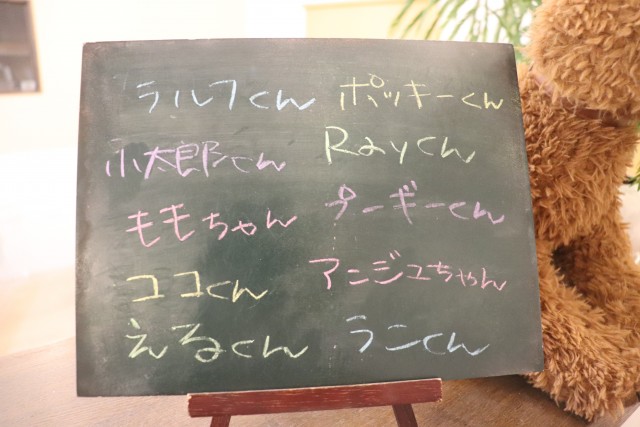 ラルフくん
ポッキーくん
小太郎くん
Rayくん
ももちゃん
プーギーくん
ココくん
アンジュちゃん
えるくん
ランくん